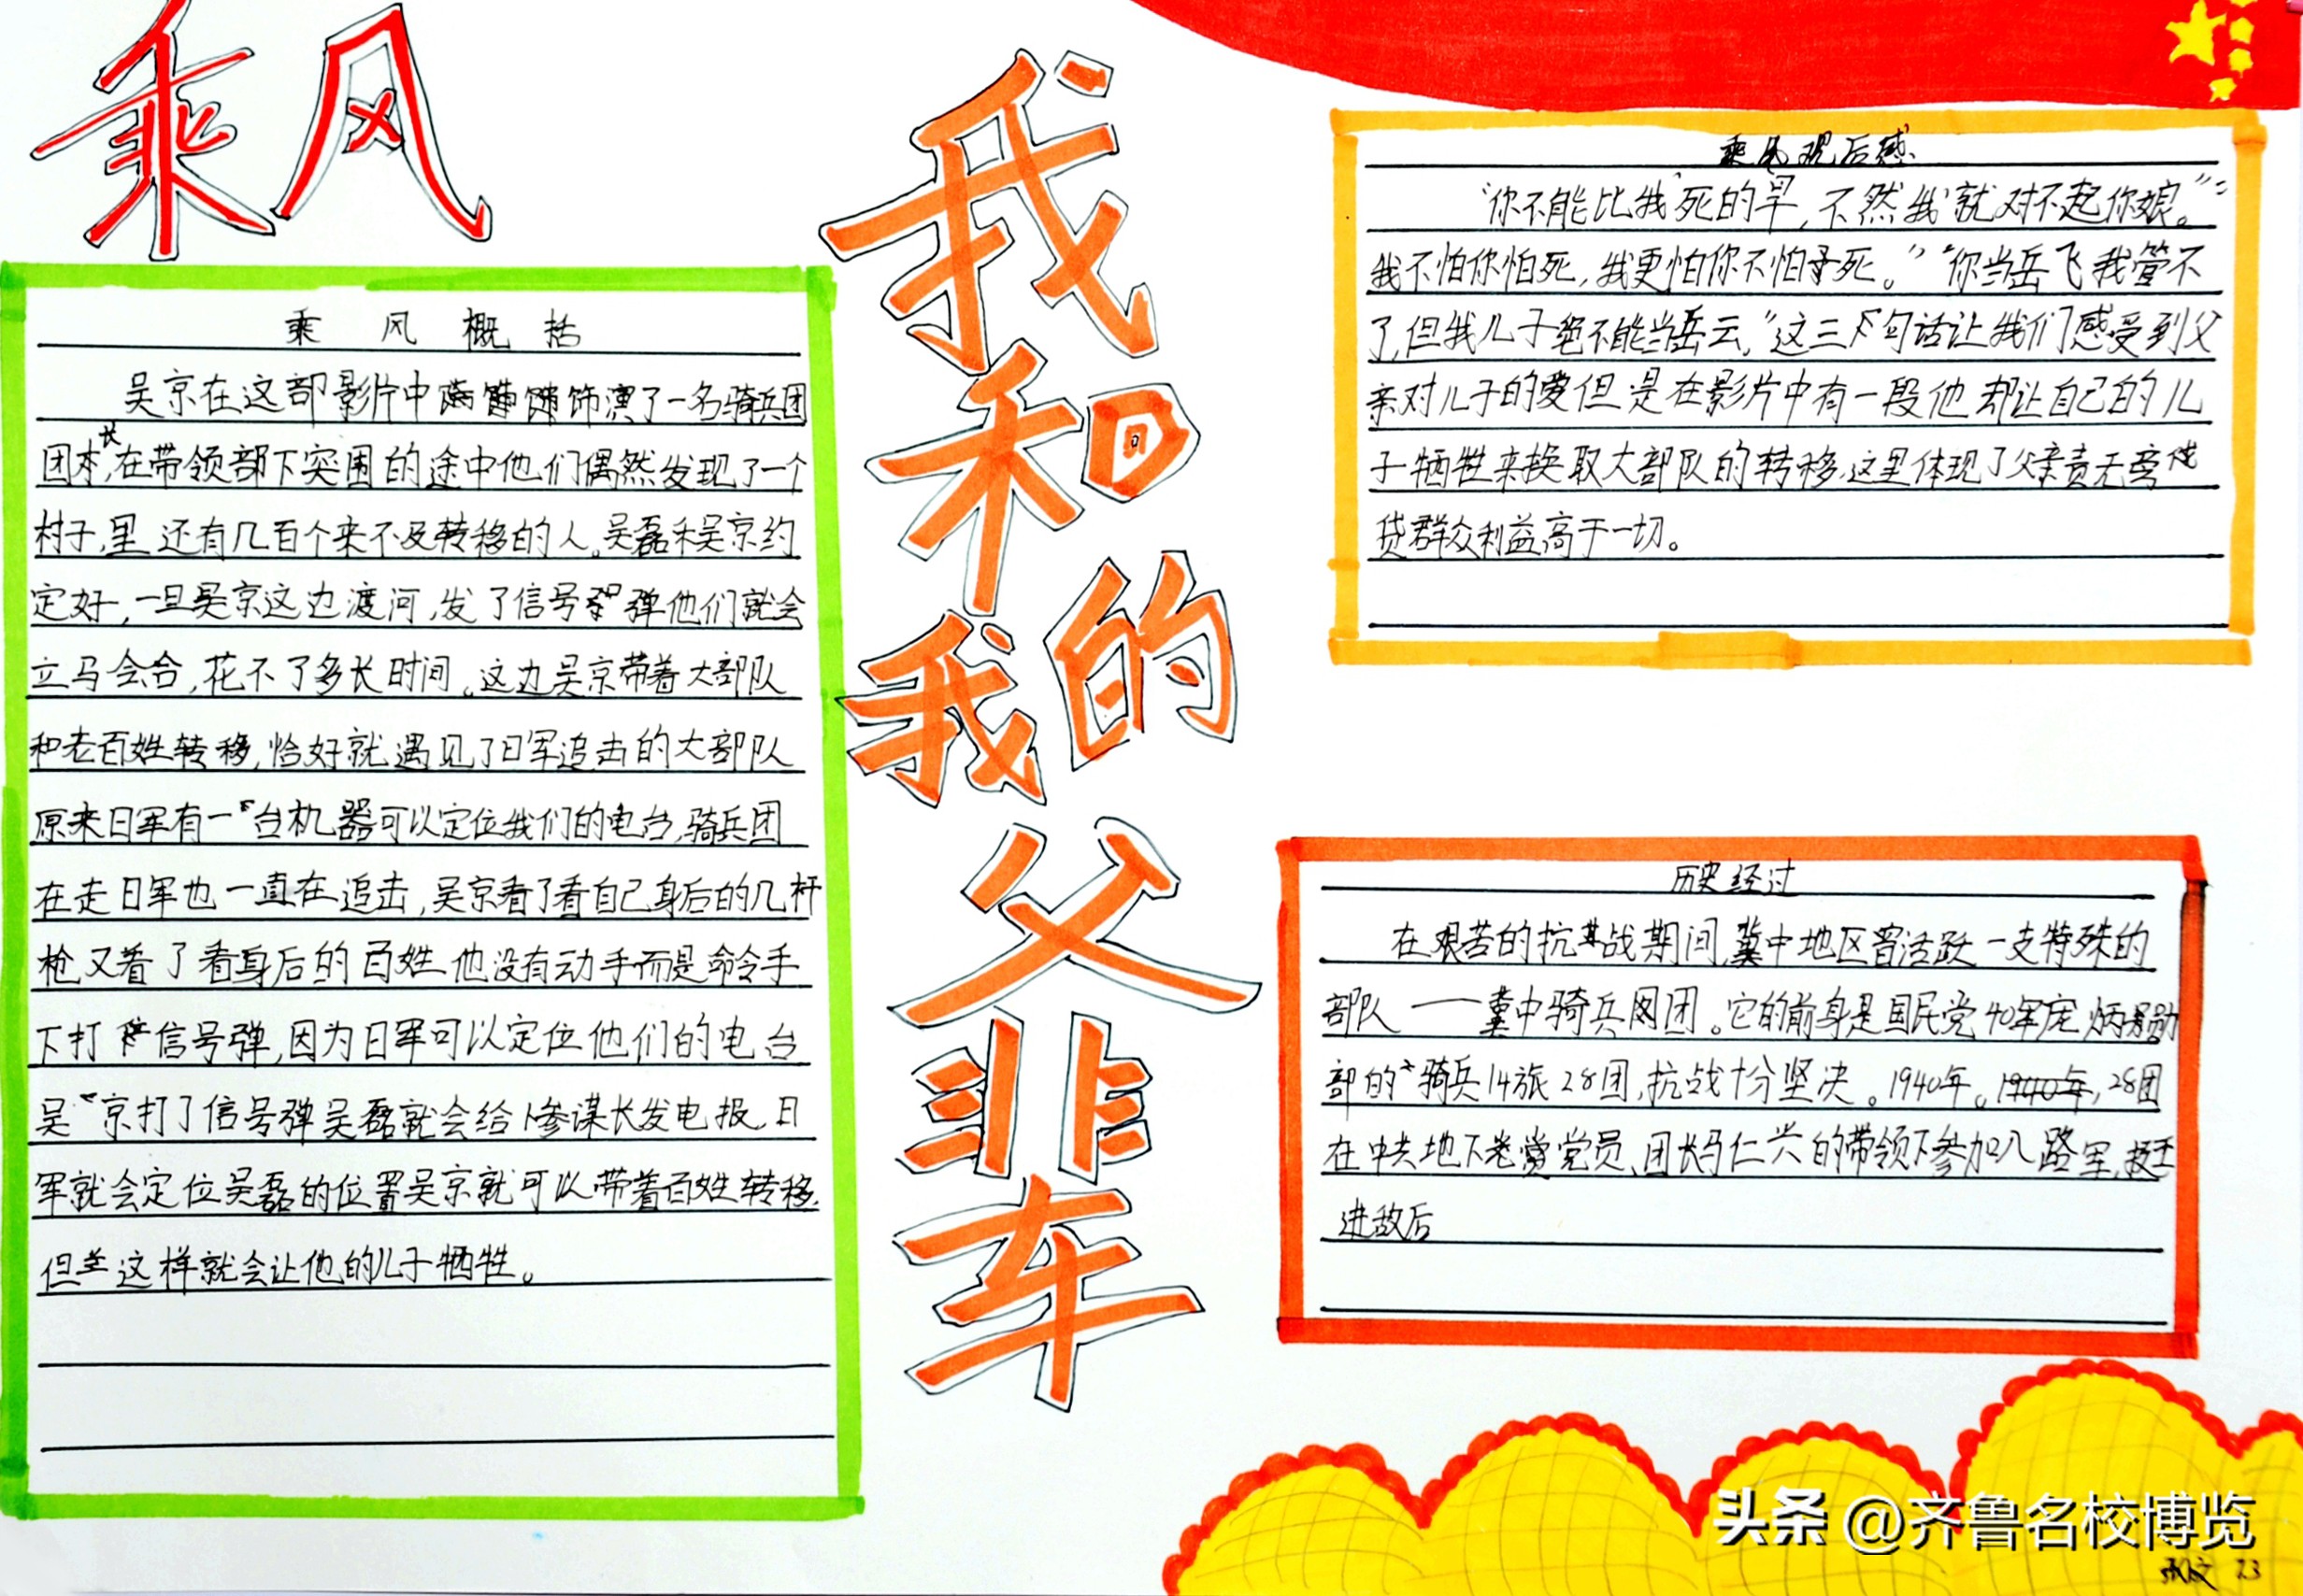 乘风
乘风概括
吴京在这部影片中饰演了一名骑兵团
团长,在带领部下突围的途中他们偶然发现了一个
村子,里还有几百个来不及转移的人。吴磊和吴京约
定好,一旦吴京这边渡河,发了信号弹他们就会
立马会合,花不了多长时间。这边吴京带着大部队
和老百姓转移,恰好就遇见了日军追击的大部队
原来日军有一台机器可以定位我们的电台,骑兵团
在走日军也一直在追击,吴京看了看自己身后的几杆
枪又看了看身后的百姓他没有动手而是命令手
下打信号弹,因为日军可以定位他们的电台
吴京打了信号弹吴磊就会给参谋长发电报,日
军就会定位吴磊的位置吴京就可以带着百姓转移.
但这样就会让他的儿子牺牲。
我和我的父辈
乘风观后感
“你不能比我死的早,不然我就对不起你娘。”
我不怕你怕死,我更怕你不怕死。”“你当岳飞我管不
了,但我儿子绝不能当岳云,”这三句话让我们感受到父
亲对儿子的爱但是在影片中有一段他却让自己的儿
子牺牲来换取大部队的转移,这里体现了父亲责无旁
贷群众利益高于一切。
历史经过
在艰苦的抗战期间,冀中地区曾活跃一支特殊的
部队——冀中骑兵团。它的前身是国民党40军庞炳勋
部的骑兵14旅28团,抗战十分坚决。1940年。1940年,28团
在中共地下党员、团长马仁兴的带领下参加八路军,挺
进敌后
头条 @齐鲁名校博览